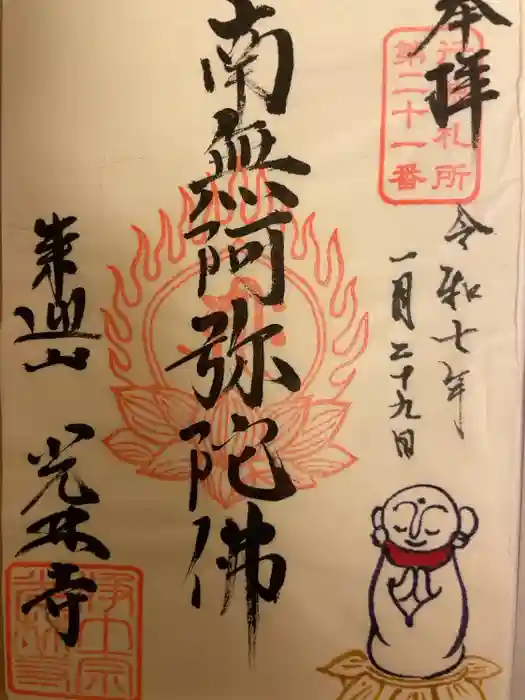 奉拝
第二十一番
札所
令和七年
一月二十九日
南無阿弥陀佛
来迎山
光林寺
浄土宗